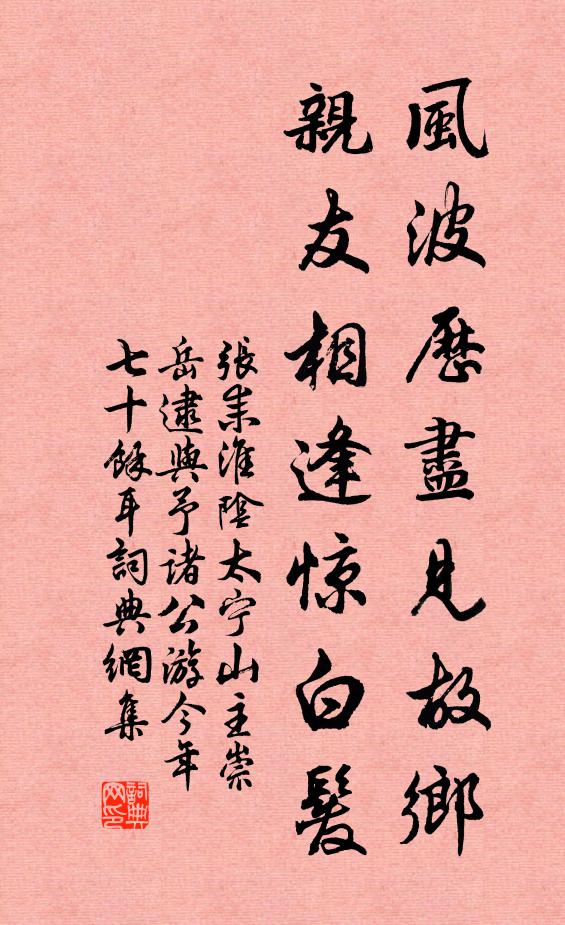 風波歷盡見故鄉
親友相逢惊白髮
張耒淮陰太宁山主崇
岳逮與予諸公游今年
七十餘耳詞典網集
詞典网印